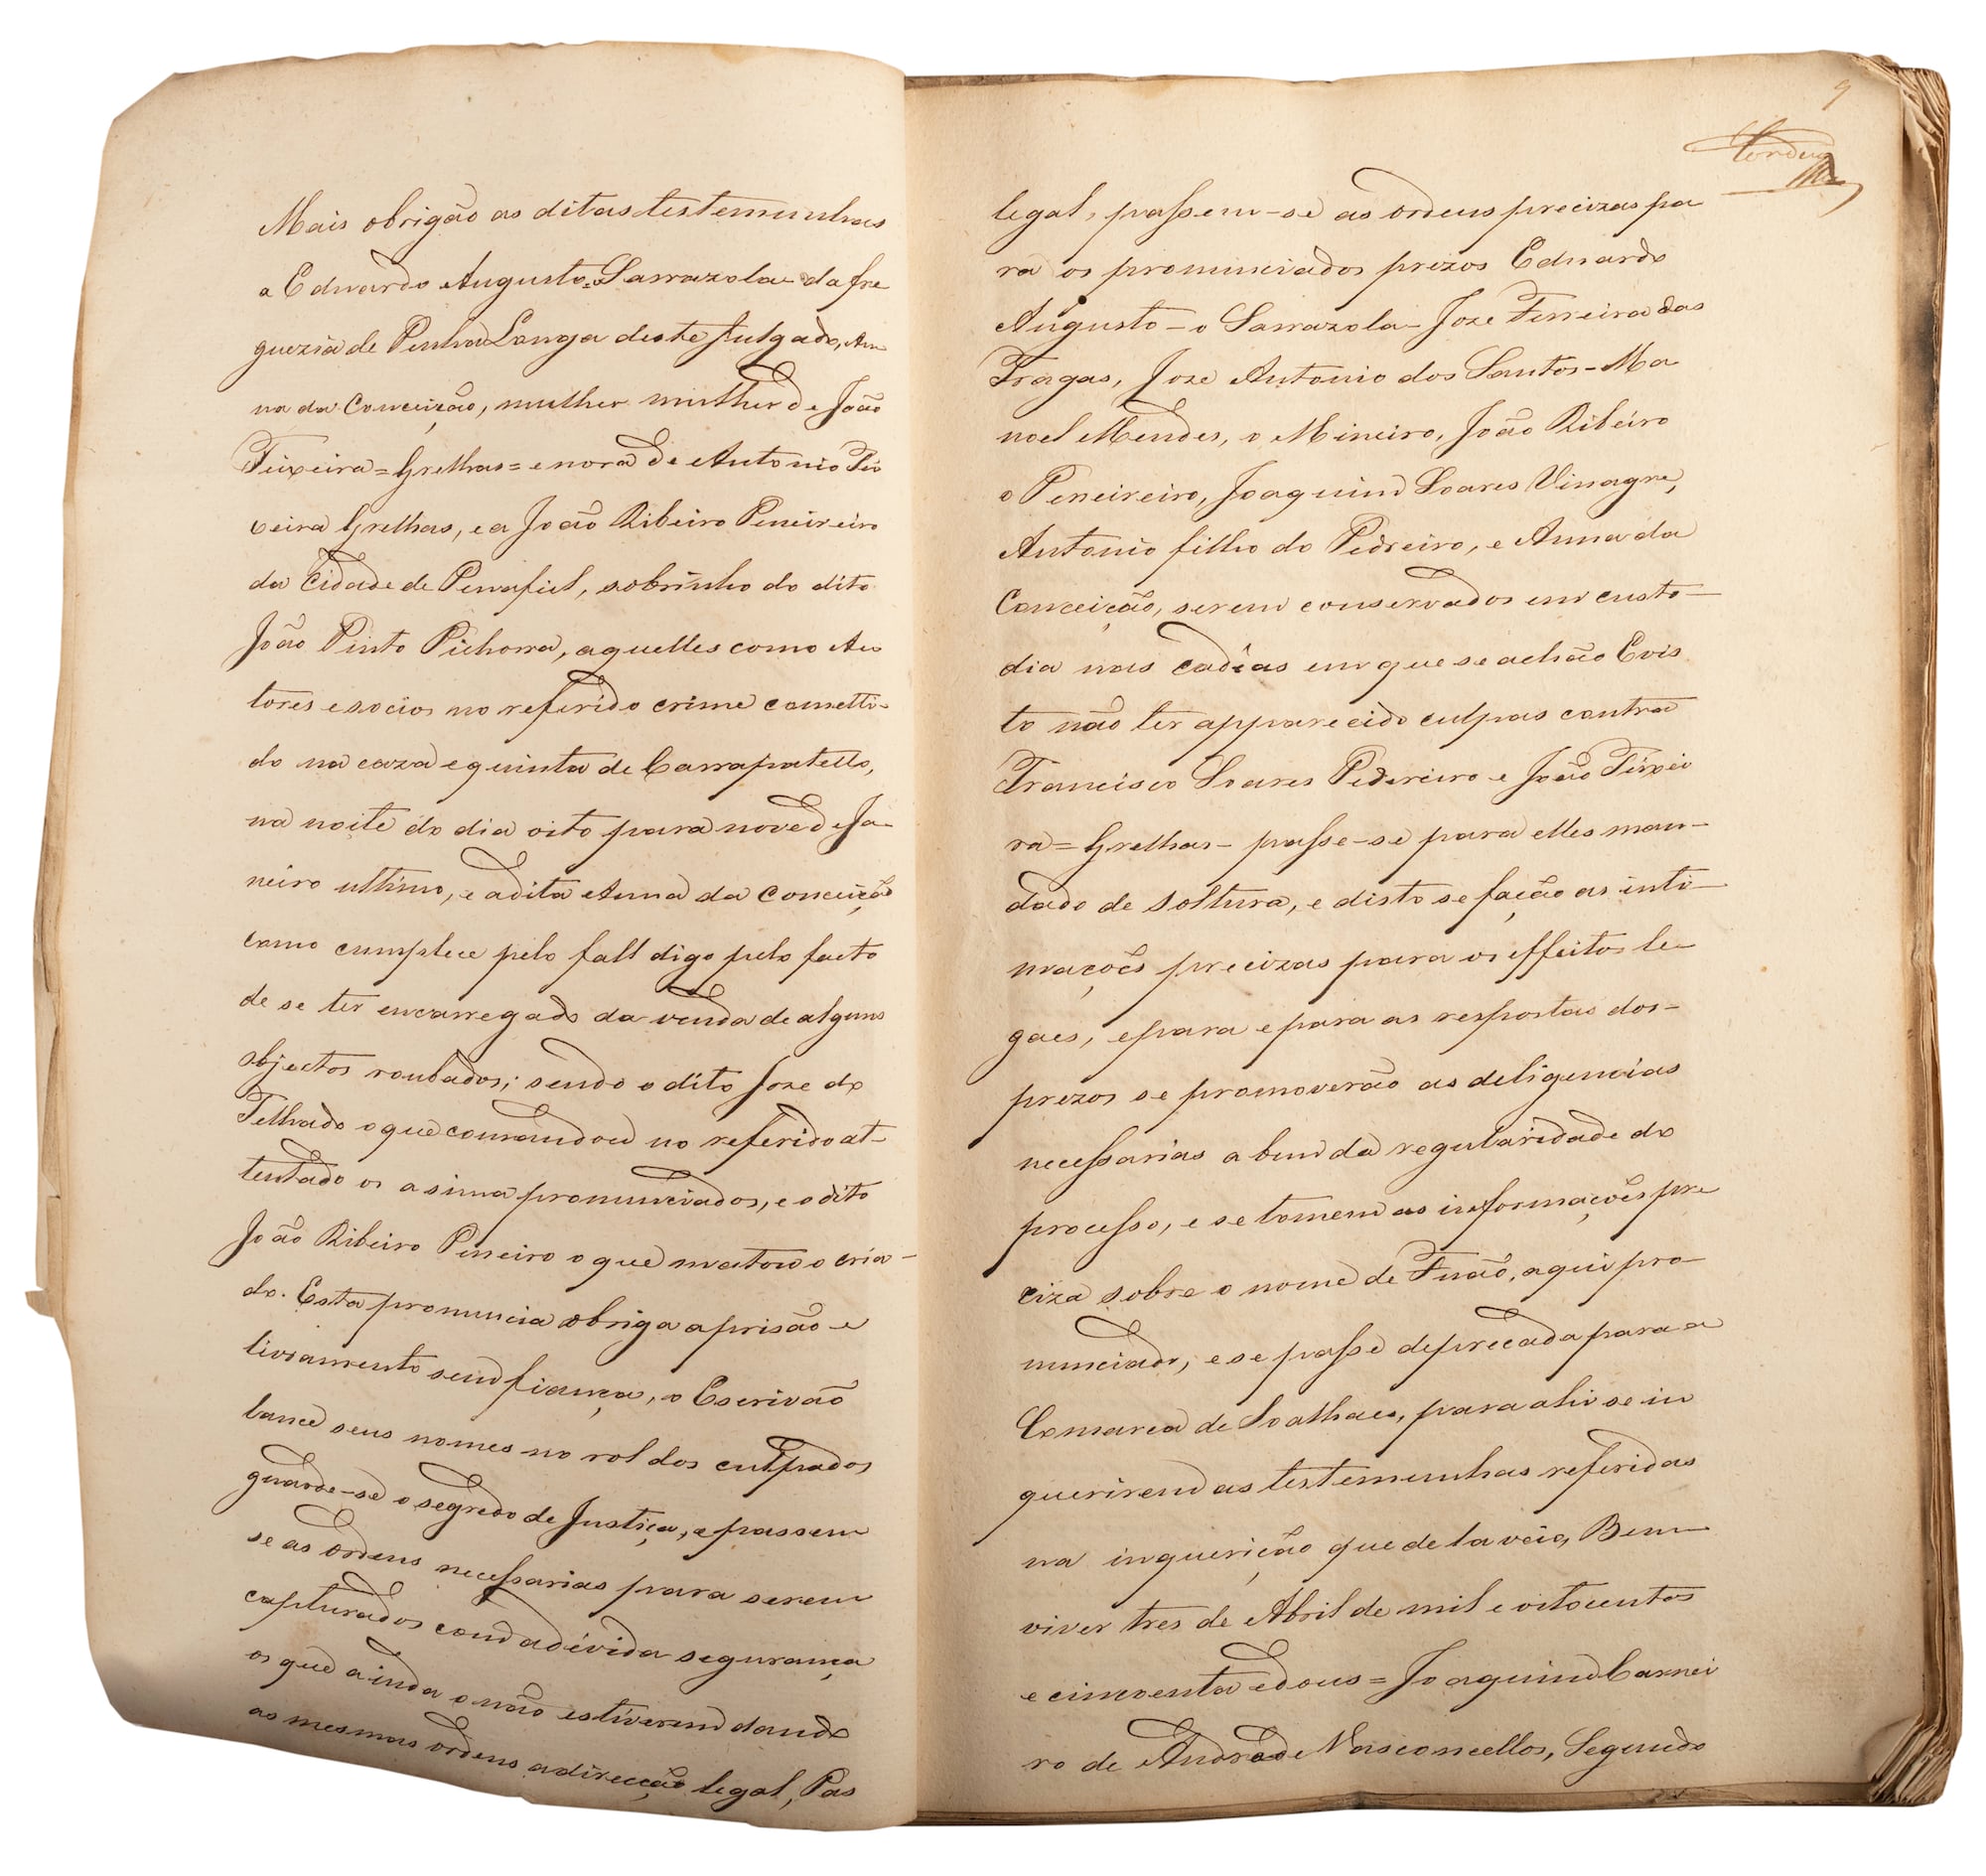 Mais obrigão as ditas testemunhas
a Eduardo Augusto=o Sarrazola da fre
guezia de Penha Longa deste Julgado, An
na da Conceição, mulher mulher de João
Teixeira=Grelhas=e nora de Antonio Tei
xeira Grelhas, e a João Ribeiro Peneireiro
da Cidade de Penafiel, sobrinho do dito
João Pinto Pichorra, aquelles como Au
tores e socios no referido crime cometti-
do na caza e quinta de Carrapatello,
na noite do dia oito para nove de Ja-
neiro ultimo, e a dita Anna da Conceição
como cumplece pelo fall digo pelo facto
de se ter encarregado da venda de alguns
objectos roubados; sendo o dito Joze do
Telhado o que comandou no referido at-
tentado os asima pronunciados, e o dito
João Ribeiro Peneiro o que matou o cria-
do. Esta pronuncia obriga a prisão e
livramento sem fiança, o Escrivão
lance seus nomes no rol dos culpados
guarde-se o segredo de Justiça, e passem
se as ordens necessarias para serem
capturados com a devida segurança
os que ainda o não estiverem dando
as mesmas ordens a direcção legal, Pas
9
legal, passem-se as ordens precizas pa
ra os pronunciados prezos Eduardo
Augusto-o Sarrazola-Joze Ferreira das
Fragas, Joze Antonio dos Santos-Ma
noel Mendes, o Mineiro, João Ribeiro
o Peneireiro, Joaquim Soares Vinagre,
Antonio filho do Pedreiro, e Anna da
Conceição, serem conservados em custo-
dia nas cadêas em que se achão E vis
to não ter apparecido culpas contra
Francisco Soares Pedereiro e João Teixei
ra=Grelhas-passe-se para elles man-
dado de soltura, e disto se fação as inti-
mações precizas para os effeitos le-
gaes, e para e para as respostas dos-
prezos se promoverão as deligencias
necessarias a bem da regularidade do
processo, e se tomem as informações pre
ciza sobre o nome de Fuão, aqui pro-
nunciado, e se passe deprecada para a
Comarca de Soalhaes, para ahi se in
querirem as testemunhas referidas
na inquerição que de la veio, Bem-
viver tres de Abril de mil e oitocentos
e cincoenta e dous=Joaquim Carnei
ro de Andrade Vasconcellos, Segundo